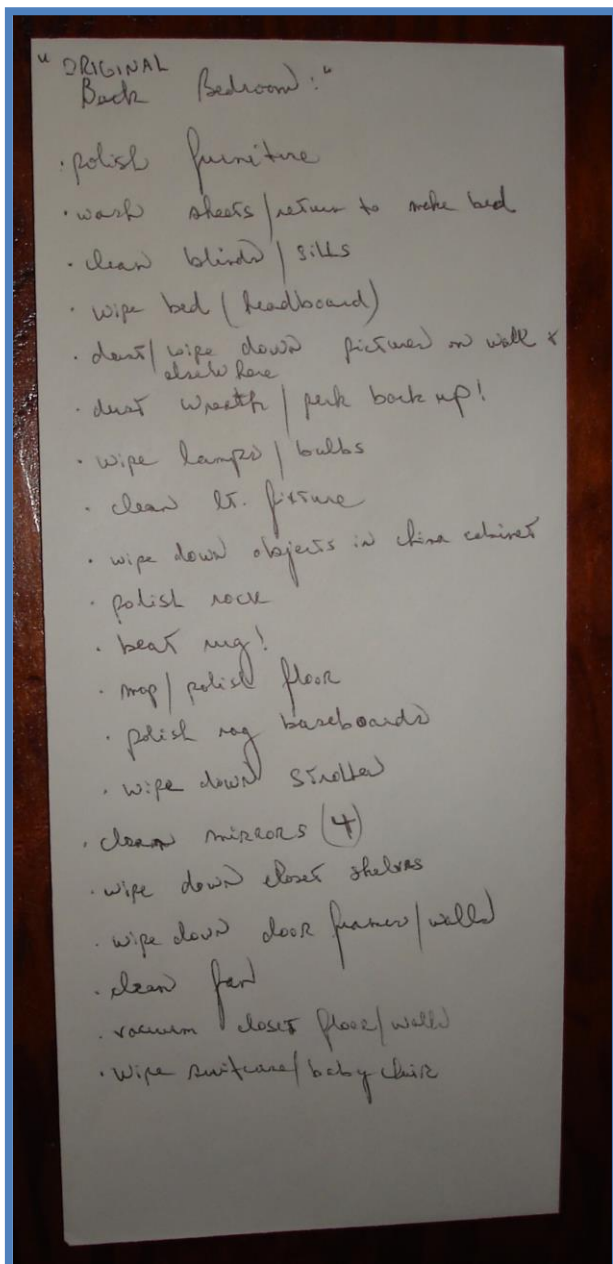 "ORIGINAL
Back Bedroom:"
· polish furniture
· wash sheets/return to make bed
· clean blinds/sills
· wipe bed (headboard)
· dust/wipe down pictures on walls &
elsewhere
· dust wreath/perk back up!
· wipe lamps/bulbs
· clean lt. fixture
· wipe down objects in china cabinet
· polish rock
· beat rug!
· mop/polish floor
· polish rag baseboards
· wipe down stroller
· clean mirrors (4)
· wipe down closet shelves
· wipe down door frames/walls
· clean fan
· vacuum closet floor/walls
· wipe suitcase/baby chair